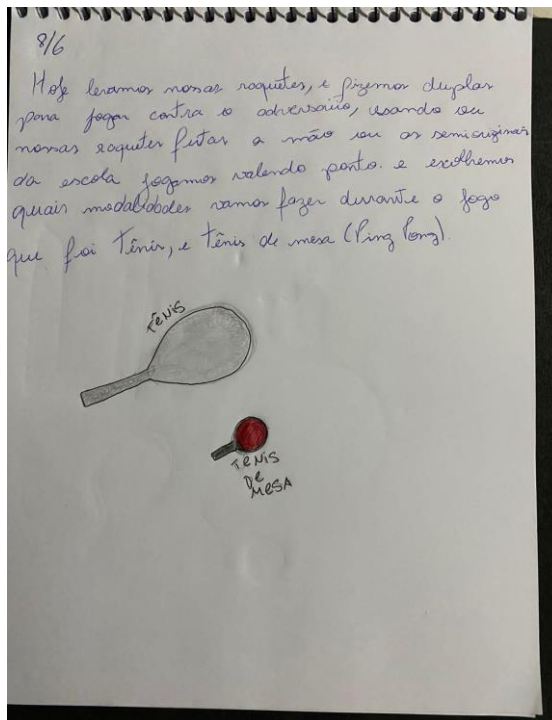 8/6
Hoje levamos nossas raquetes, e fizemos duplas
para jogar contra o adversário, usando ou
nossas raquetes feitas a mão ou as semioriginais
da escola jogamos valendo ponto. e escolhemos
quais modalidades vamos fazer durante o jogo
que foi Tênis, e tênis de mesa (Ping Pong).
TÊNIS
TENIS
DE
MESA